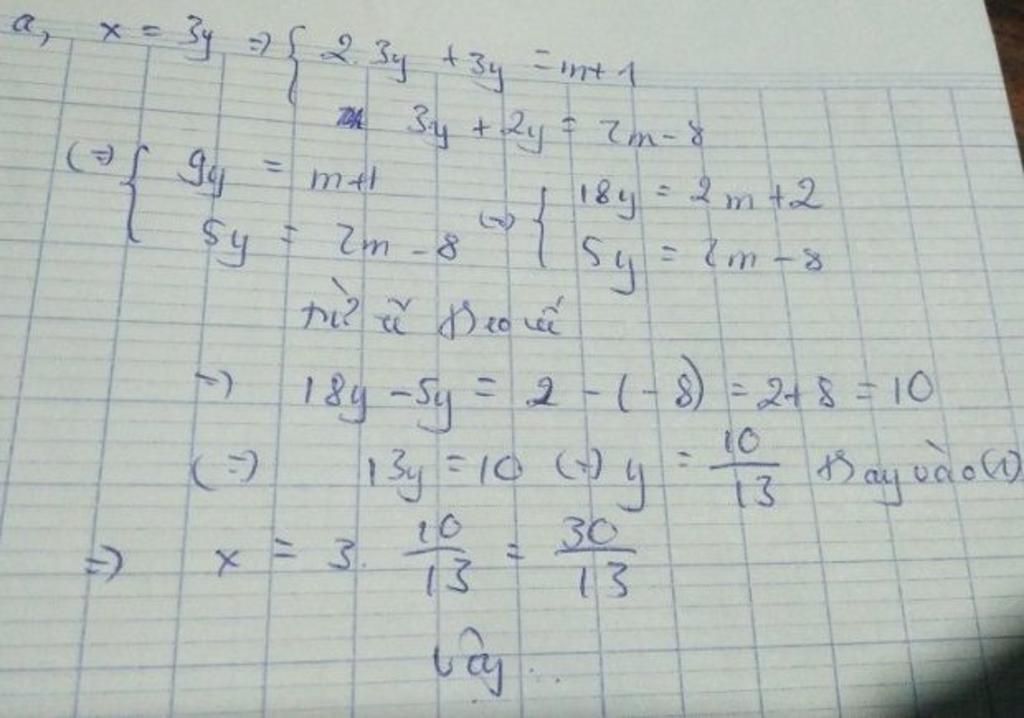 a, x = 3y => { 2.3y + 3y = m+1
3y + 2y = 2m - 8
(=) { 9y = m+1
5y = 2m - 8
(=) { 18y = 2m + 2
5y = 2m - 8
trừ vế theo vế
=) 18y - 5y = 2 - (-8) = 2+8 = 10
(=) 13y = 10 (=) y = 10/13 thay vào (1)
=) x = 3. 10/13 = 30/13
Vậy ...